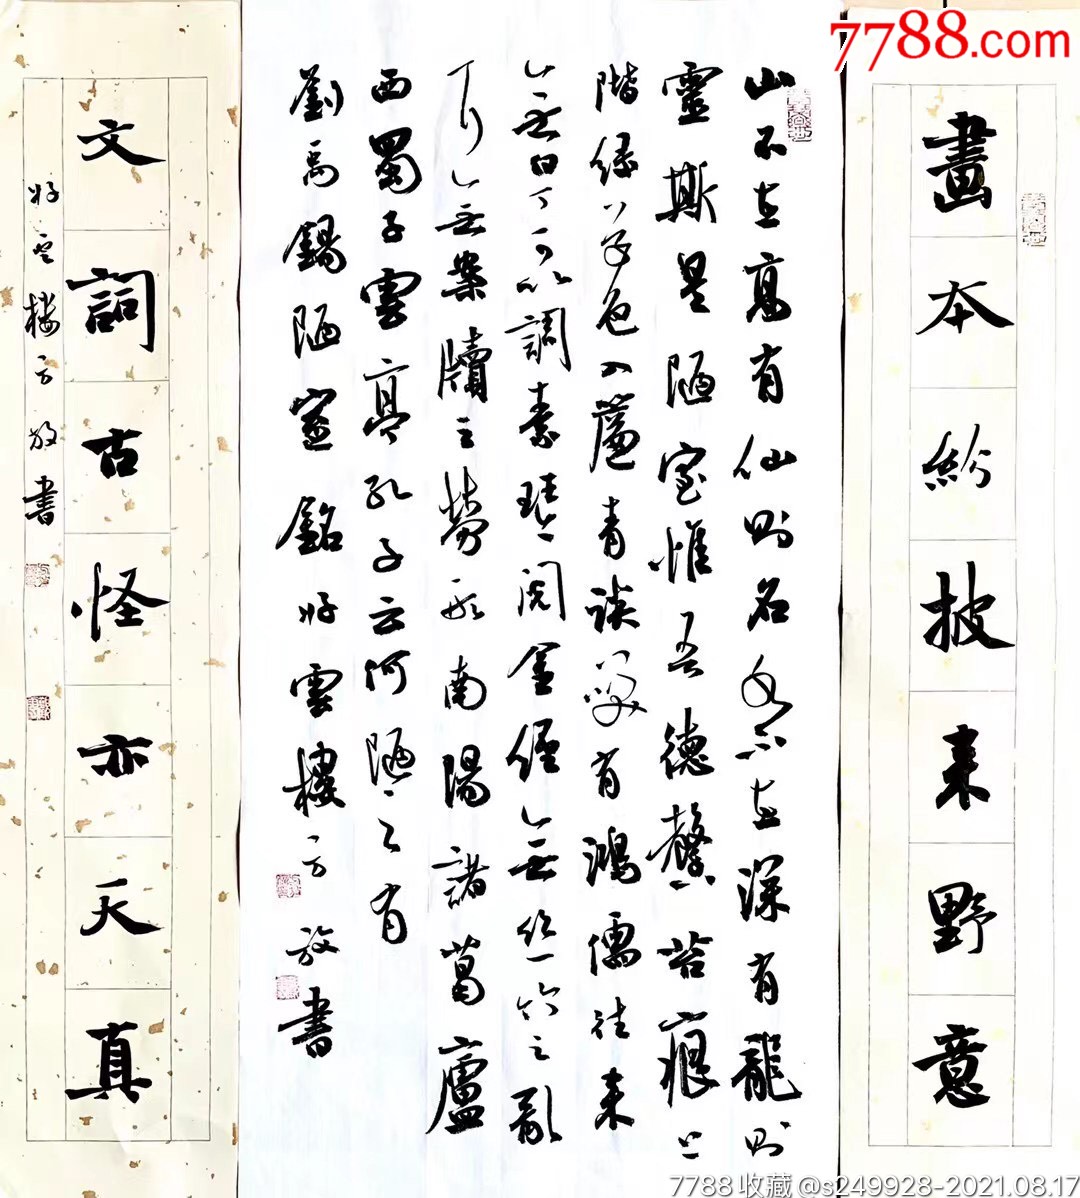 7788.com
畫本紛披来野意
山不在高有仙則名水不在深有龍則
靈斯是陋室惟吾德馨苔痕上
階綠草色入簾青談笑有鴻儒往来
無白丁可以調素琴閱金經無丝竹之亂
耳無案牘之勞形南陽諸葛廬
西蜀子雲亭孔子云何陋之有
劉禹錫陋室銘好雲樓方放書
文詞古怪亦天真
好雲樓方放書
7788收藏@s249928-2021.08.17